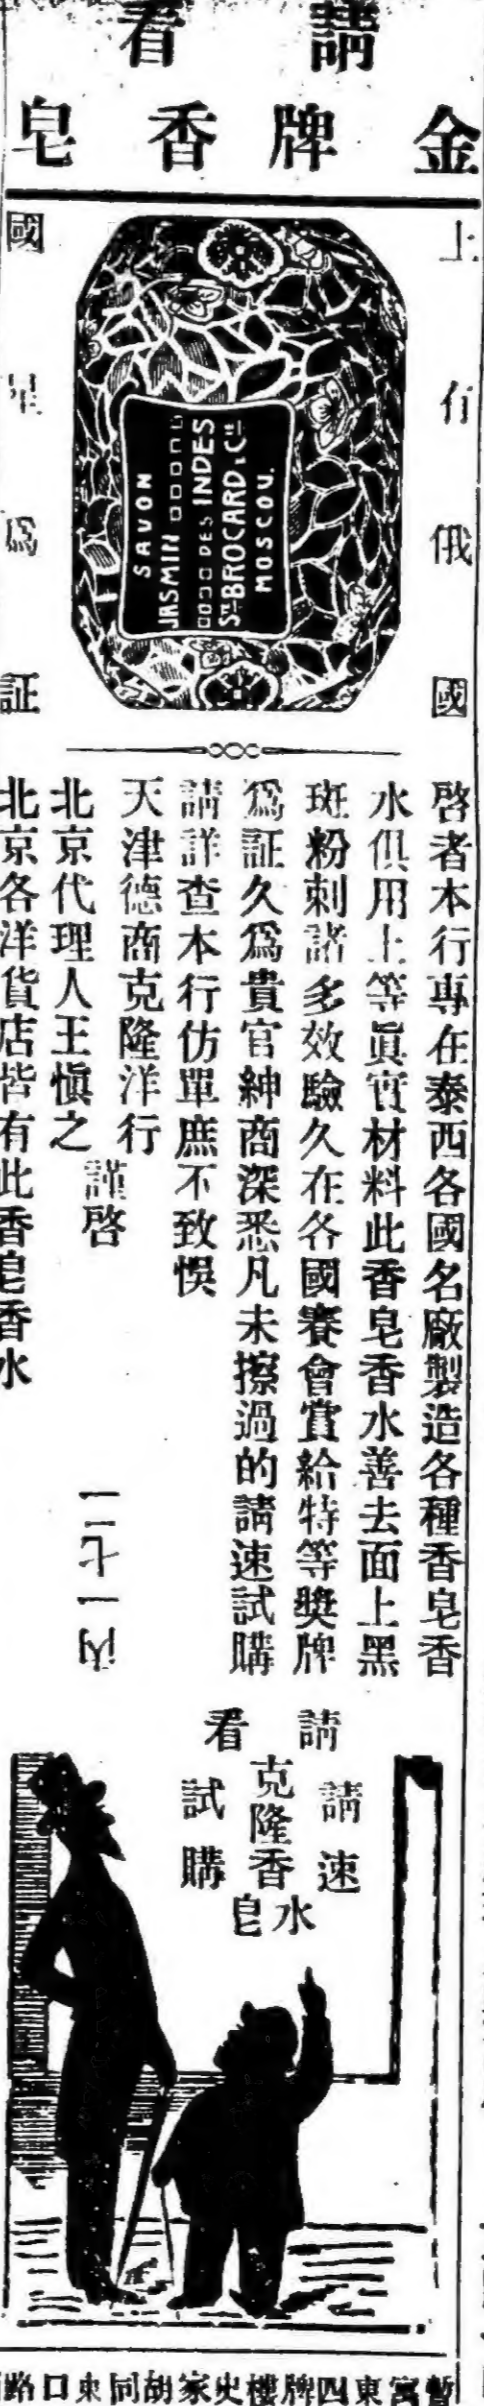 請看
金牌香皂
上有俄國
國皇為証
SAVON
JASMIN
DES INDES
Sté BROCARD & Cie
MOSCOU.
啓者本行專在泰西各國名廠製造各種香皂香
水俱用上等眞實材料此香皂香水善去面上黑
斑粉刺諸多效驗久在各國賽會賞給特等獎牌
為証久為貴官紳商深悉凡未擦過的請速試購
請詳查本行仿單庶不致悞
天津德商克隆洋行
謹啓
北京代理人王愼之
北京各洋貨店皆有此香皂香水
丙一七二一
請看
請速
克隆香水
皂
試購
暫寓東四牌樓史家胡同東口路